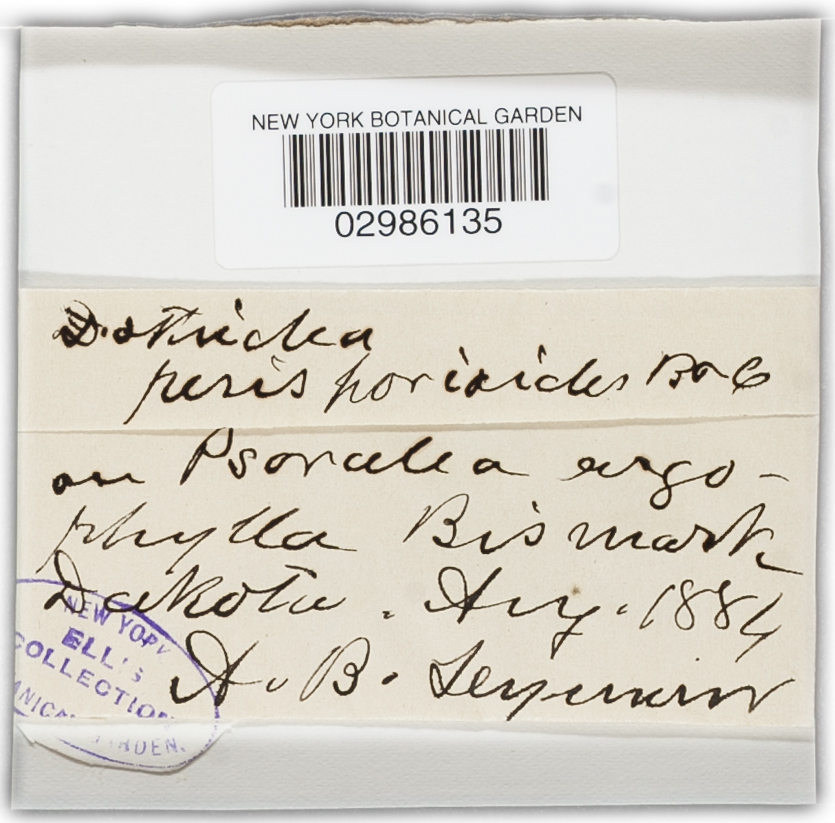 NEW YORK BOTANICAL GARDEN
02986135
Dothidea
perisporioides B & C
on Psoralea argo-
phylla Bismark
Dakota. Aug. 1884
A. B. Seymour
NEW YORK
ELLIS
COLLECTION
BOTANICAL GARDEN.